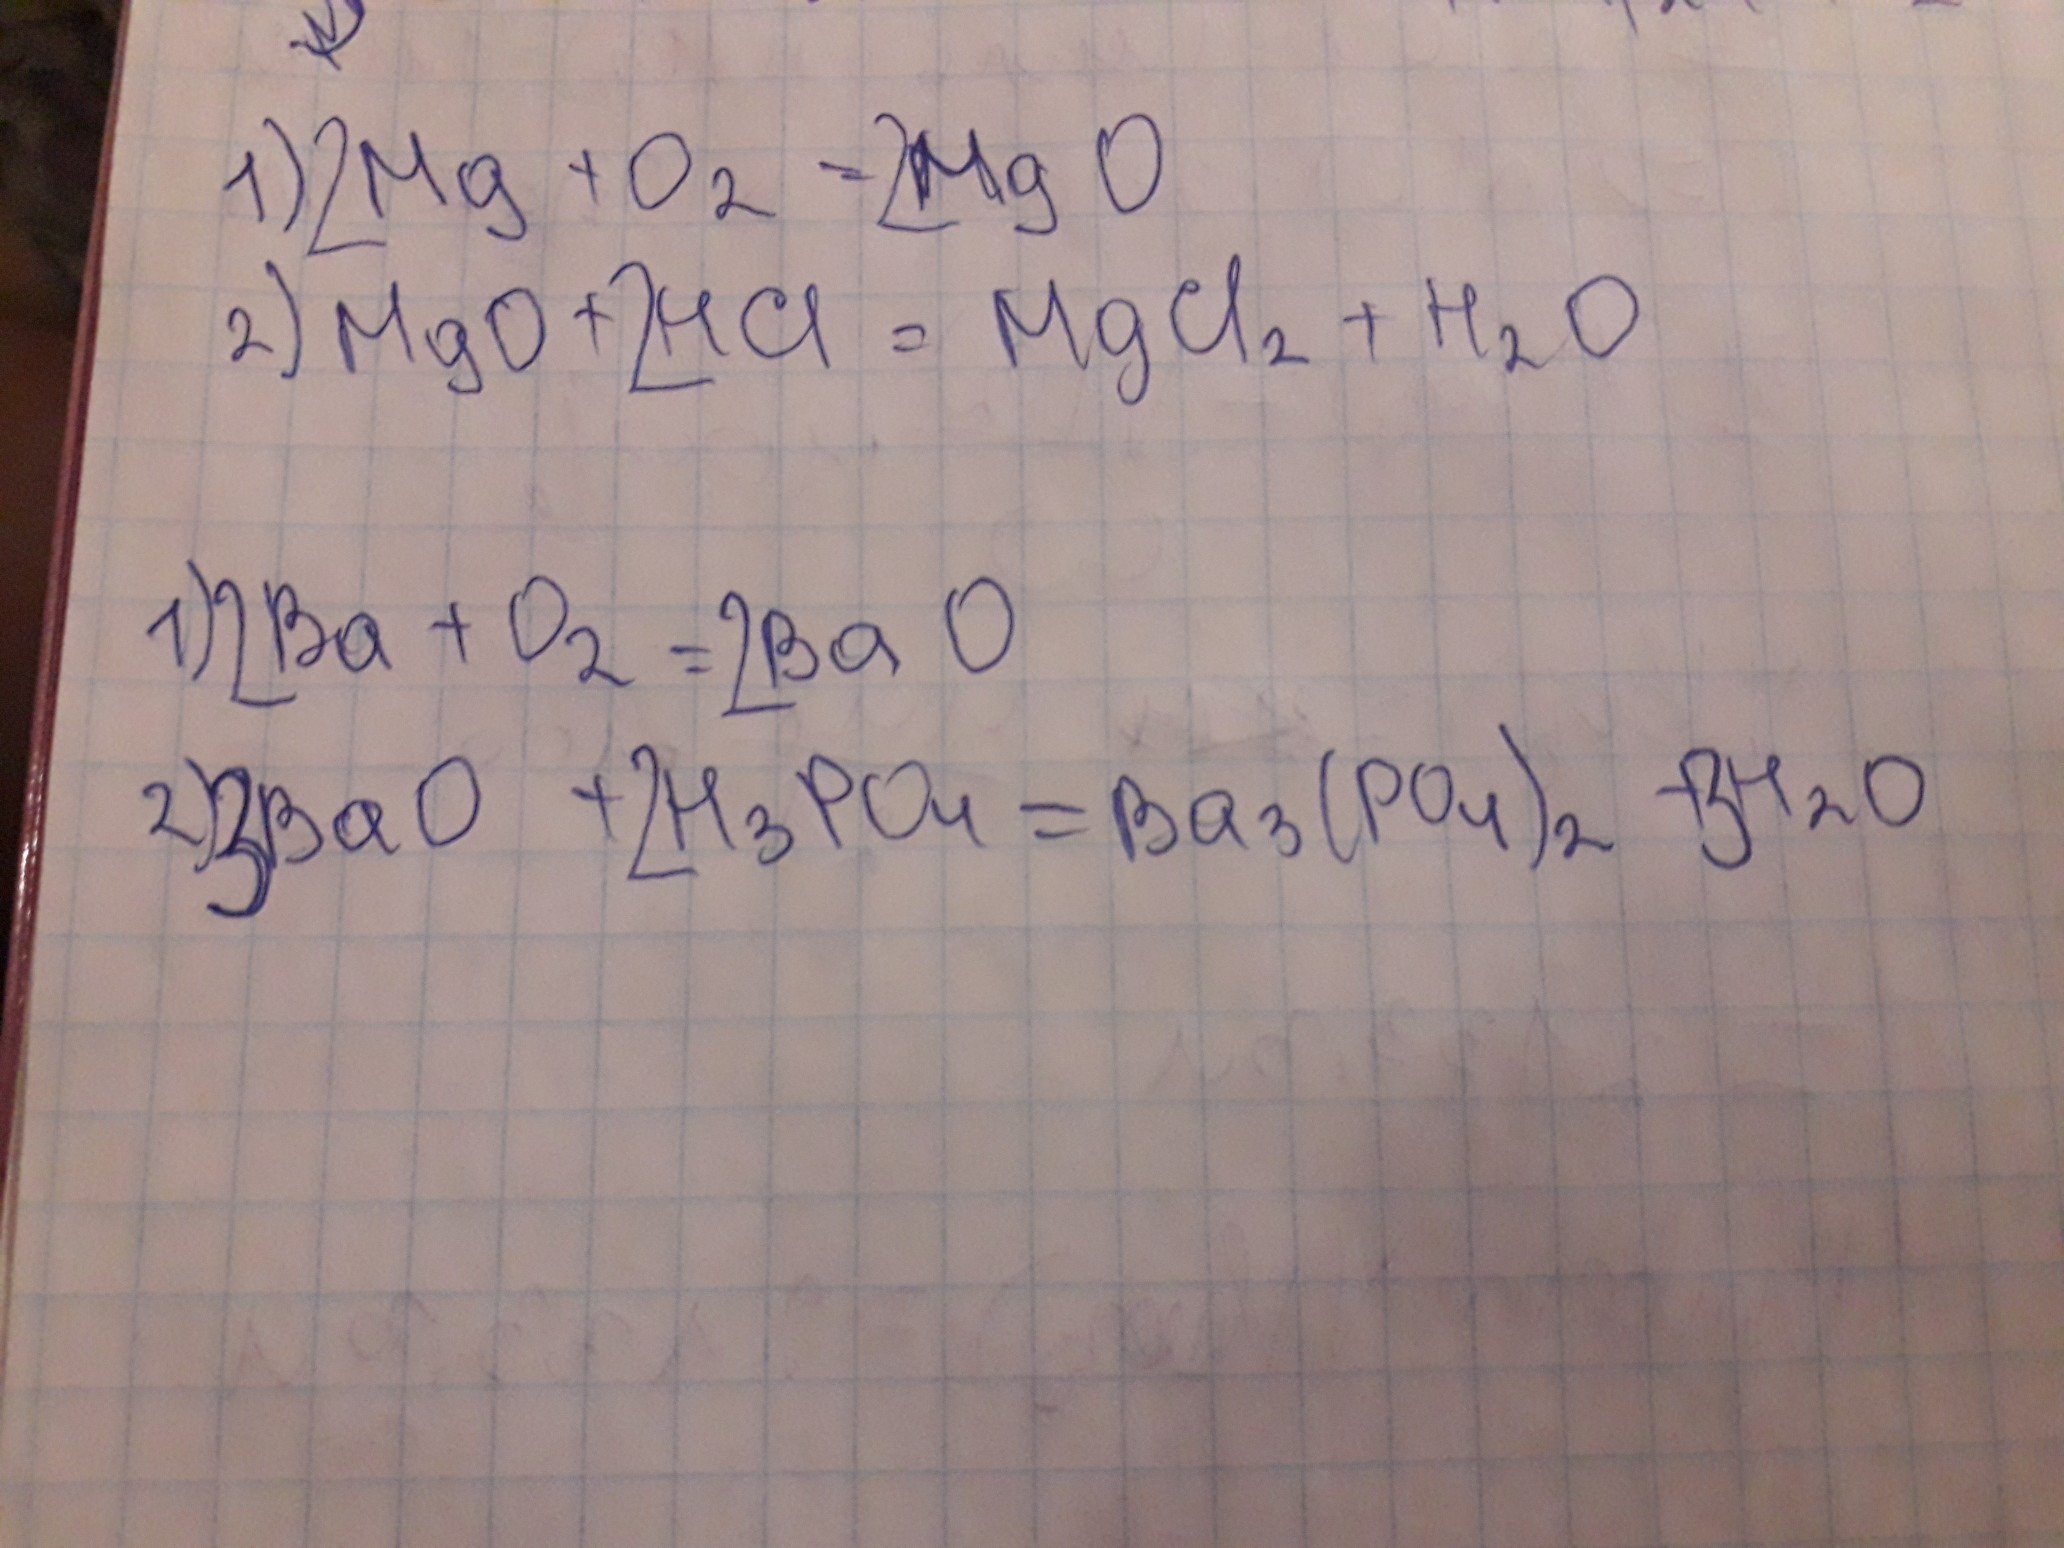 1) 2Mg + O₂ = 2MgO
2) MgO + 2HCl = MgCl₂ + H₂O
1) 2Ba + O₂ = 2BaO
2) 3BaO + 2H₃PO₄ = Ba₃(PO₄)₂ + 3H₂O